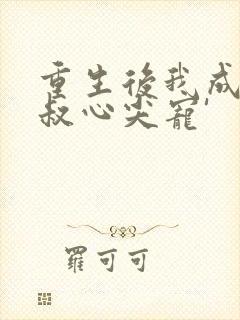 重生後我成
叔心尖寵
羅可可